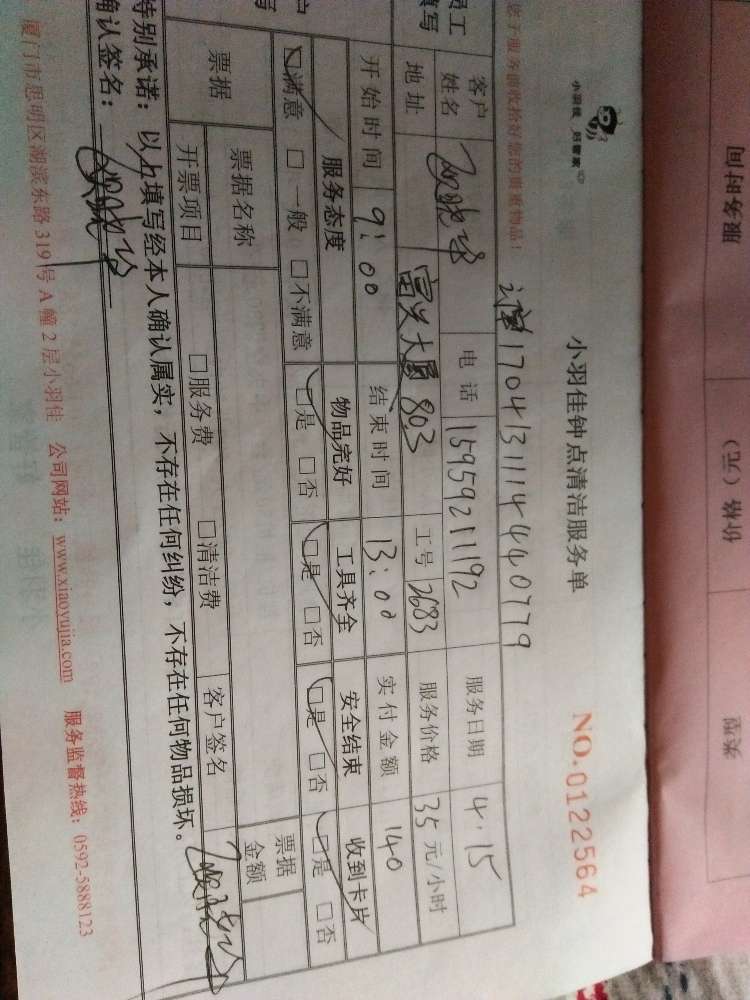 小羽佳 好管家
小羽佳钟点清洁服务单
NO.0122564
您于服务前收拾好您的贵重物品！
17041311144440779
员工
填写
客户
姓名
电话
15959211192
服务日期
4.15
地址
富兴大厦 803
工号
2683
服务价格
35元/小时
开始时间
9:00
结束时间
13:00
实付金额
140
户
写
服务态度
物品完好
工具齐全
安全结束
收到卡片
☑满意 □一般 □不满意
☑是 □否
☑是 □否
☑是 □否
☑是 □否
票据
票据名称
票据
金额
开票项目
□服务费 □清洁费
客户签名
特别承诺：以上填写经本人确认属实，不存在任何纠纷，不存在任何物品损坏。
确认签名：
厦门市思明区湖滨东路319号A幢2层小羽佳 公司网站：www.xiaoyujia.com 服务监督热线：0592-5888123
服务时间
价格（元）
类型